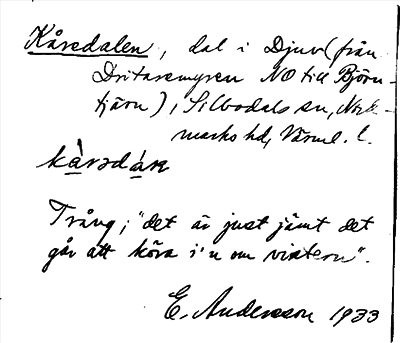 Kåredalen, dal i Djuv (från
Dritaremyren NO till Björn-
tjärn), Silbodals sn, Nord-
marks hd, Värml. l.
kàrədán
Trång; "det är just jämt det
går att köra i'n om vintern".
E. Andersson 1933